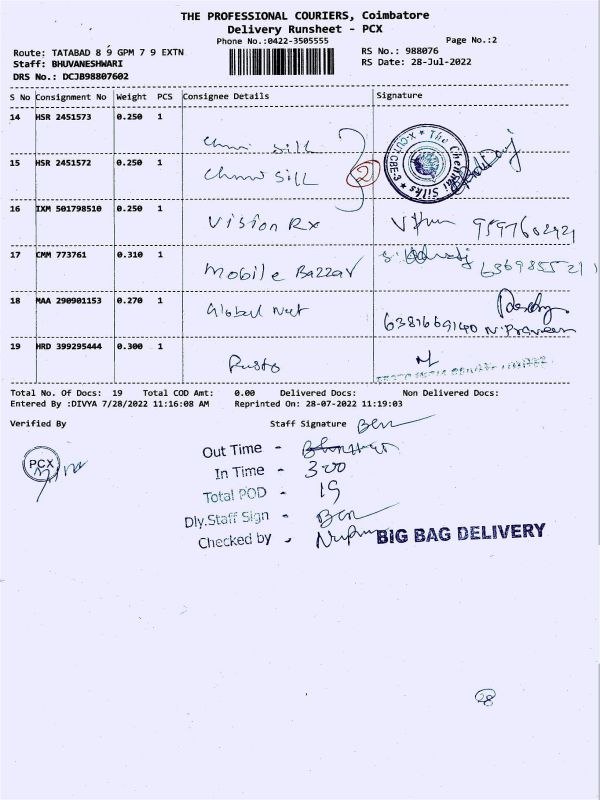 THE PROFESSIONAL COURIERS, Coimbatore
Delivery Runsheet - PCX
Phone No.:0422-3505555
Page No.:2
Route: TATABAD 8 9 GPM 7 9 EXTN
RS No.: 988076
Staff: BHUVANESHWARI
RS Date: 28-Jul-2022
DRS No.: DCJB98807602
S No Consignment No Weight PCS Consignee Details Signature
14 HSR 2451573 0.250 1
15 HSR 2451572 0.250 1
2
The Chennai Silks
16 IXM 501798510 0.250 1
Vision Rx
17 CMM 773761 0.310 1
Mobile Bazzar
18 MAA 290901153 0.270 1
Global Nut
6381669140 N. Praveen
19 HRD 399295444 0.300 1
Rusto
Total No. Of Docs: 19 Total COD Amt: 0.00 Delivered Docs: Non Delivered Docs:
Entered By :DIVYA 7/28/2022 11:16:08 AM Reprinted On: 28-07-2022 11:19:03
Verified By
Staff Signature
PCX
Out Time -
In Time - 3.00
Total POD - 19
Dly.Staff Sign -
Checked by -
BIG BAG DELIVERY
28